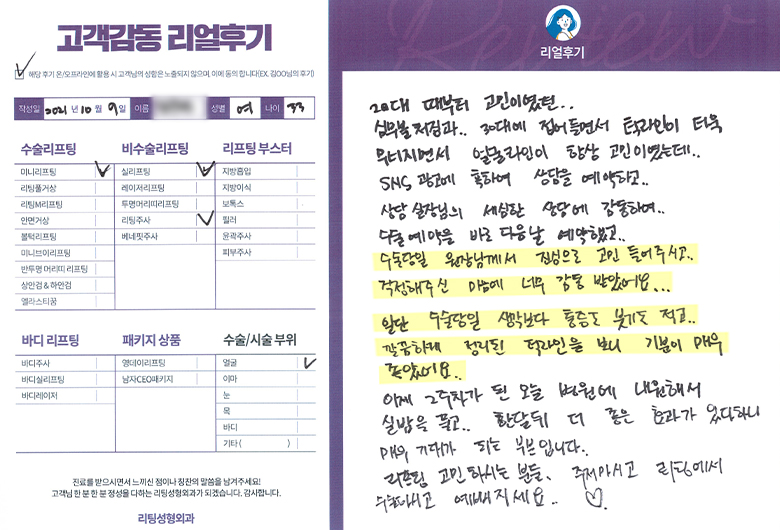 고객감동 리얼후기
해당 후기 온/오프라인에 활용 시 고객님의 성함은 노출되지 않으며, 이에 동의 합니다(EX. 김OO님의 후기)
작성일 2021 년 10 월 9 일 이름 성별 여 나이 33
수술리프팅
미니리프팅
리팅풀거상
리팅M리프팅
안면거상
볼턱리프팅
미니브이리프팅
반투명 머리띠 리프팅
상안검 & 하안검
엘라스티꿈
비수술리프팅
실리프팅
레이저리프팅
투명머리띠리프팅
리팅주사
베네핏주사
리프팅 부스터
지방흡입
지방이식
보톡스
필러
윤곽주사
피부주사
바디 리프팅
바디주사
바디실리프팅
바디레이저
패키지 상품
영더이리프팅
남자CEO패키지
수술/시술 부위
얼굴
이마
눈
목
바디
기타 ( )
진료를 받으시면서 느끼신 점이나 칭찬의 말씀을 남겨주세요!
고객님 한 분 한 분 정성을 다하는 리팅성형외과가 되겠습니다. 감사합니다.
리팅성형외과
Review
리얼후기
20대 때부터 고민이였던..
심부볼 처짐과.. 30대에 접어들면서 턱라인이 더욱
무너지면서 얼굴라인이 항상 고민이였는데..
SNS 광고에 혹하여 상담을 예약하고..
상담 실장님의 세심한 상담에 감동하여..
수술 예약을 바로 다음날 예약했고..
수술당일 원장님께서 진심으로 고민 들어주시고..
걱정해주신 마음에 너무 감동 받았어요...
일단 수술당일 생각보다 통증도 붓기도 적고..
깔끔하게 정리된 턱라인을 보니 기분이 매우
좋았어요..
이제 2주차가 된 오늘 병원에 내원해서
실밥을 풀고.. 한달뒤 더 좋은 효과가 있다하니
매우 기대가 되는 부분입니다.
리프팅 고민하시는 분들, 주저마시고 리팅에서
수술하시고 예뻐지세요.. ♡.